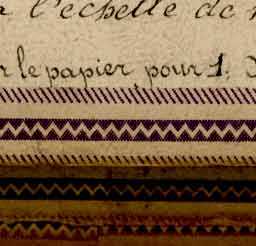 l'échelle de
le papier pour 1.